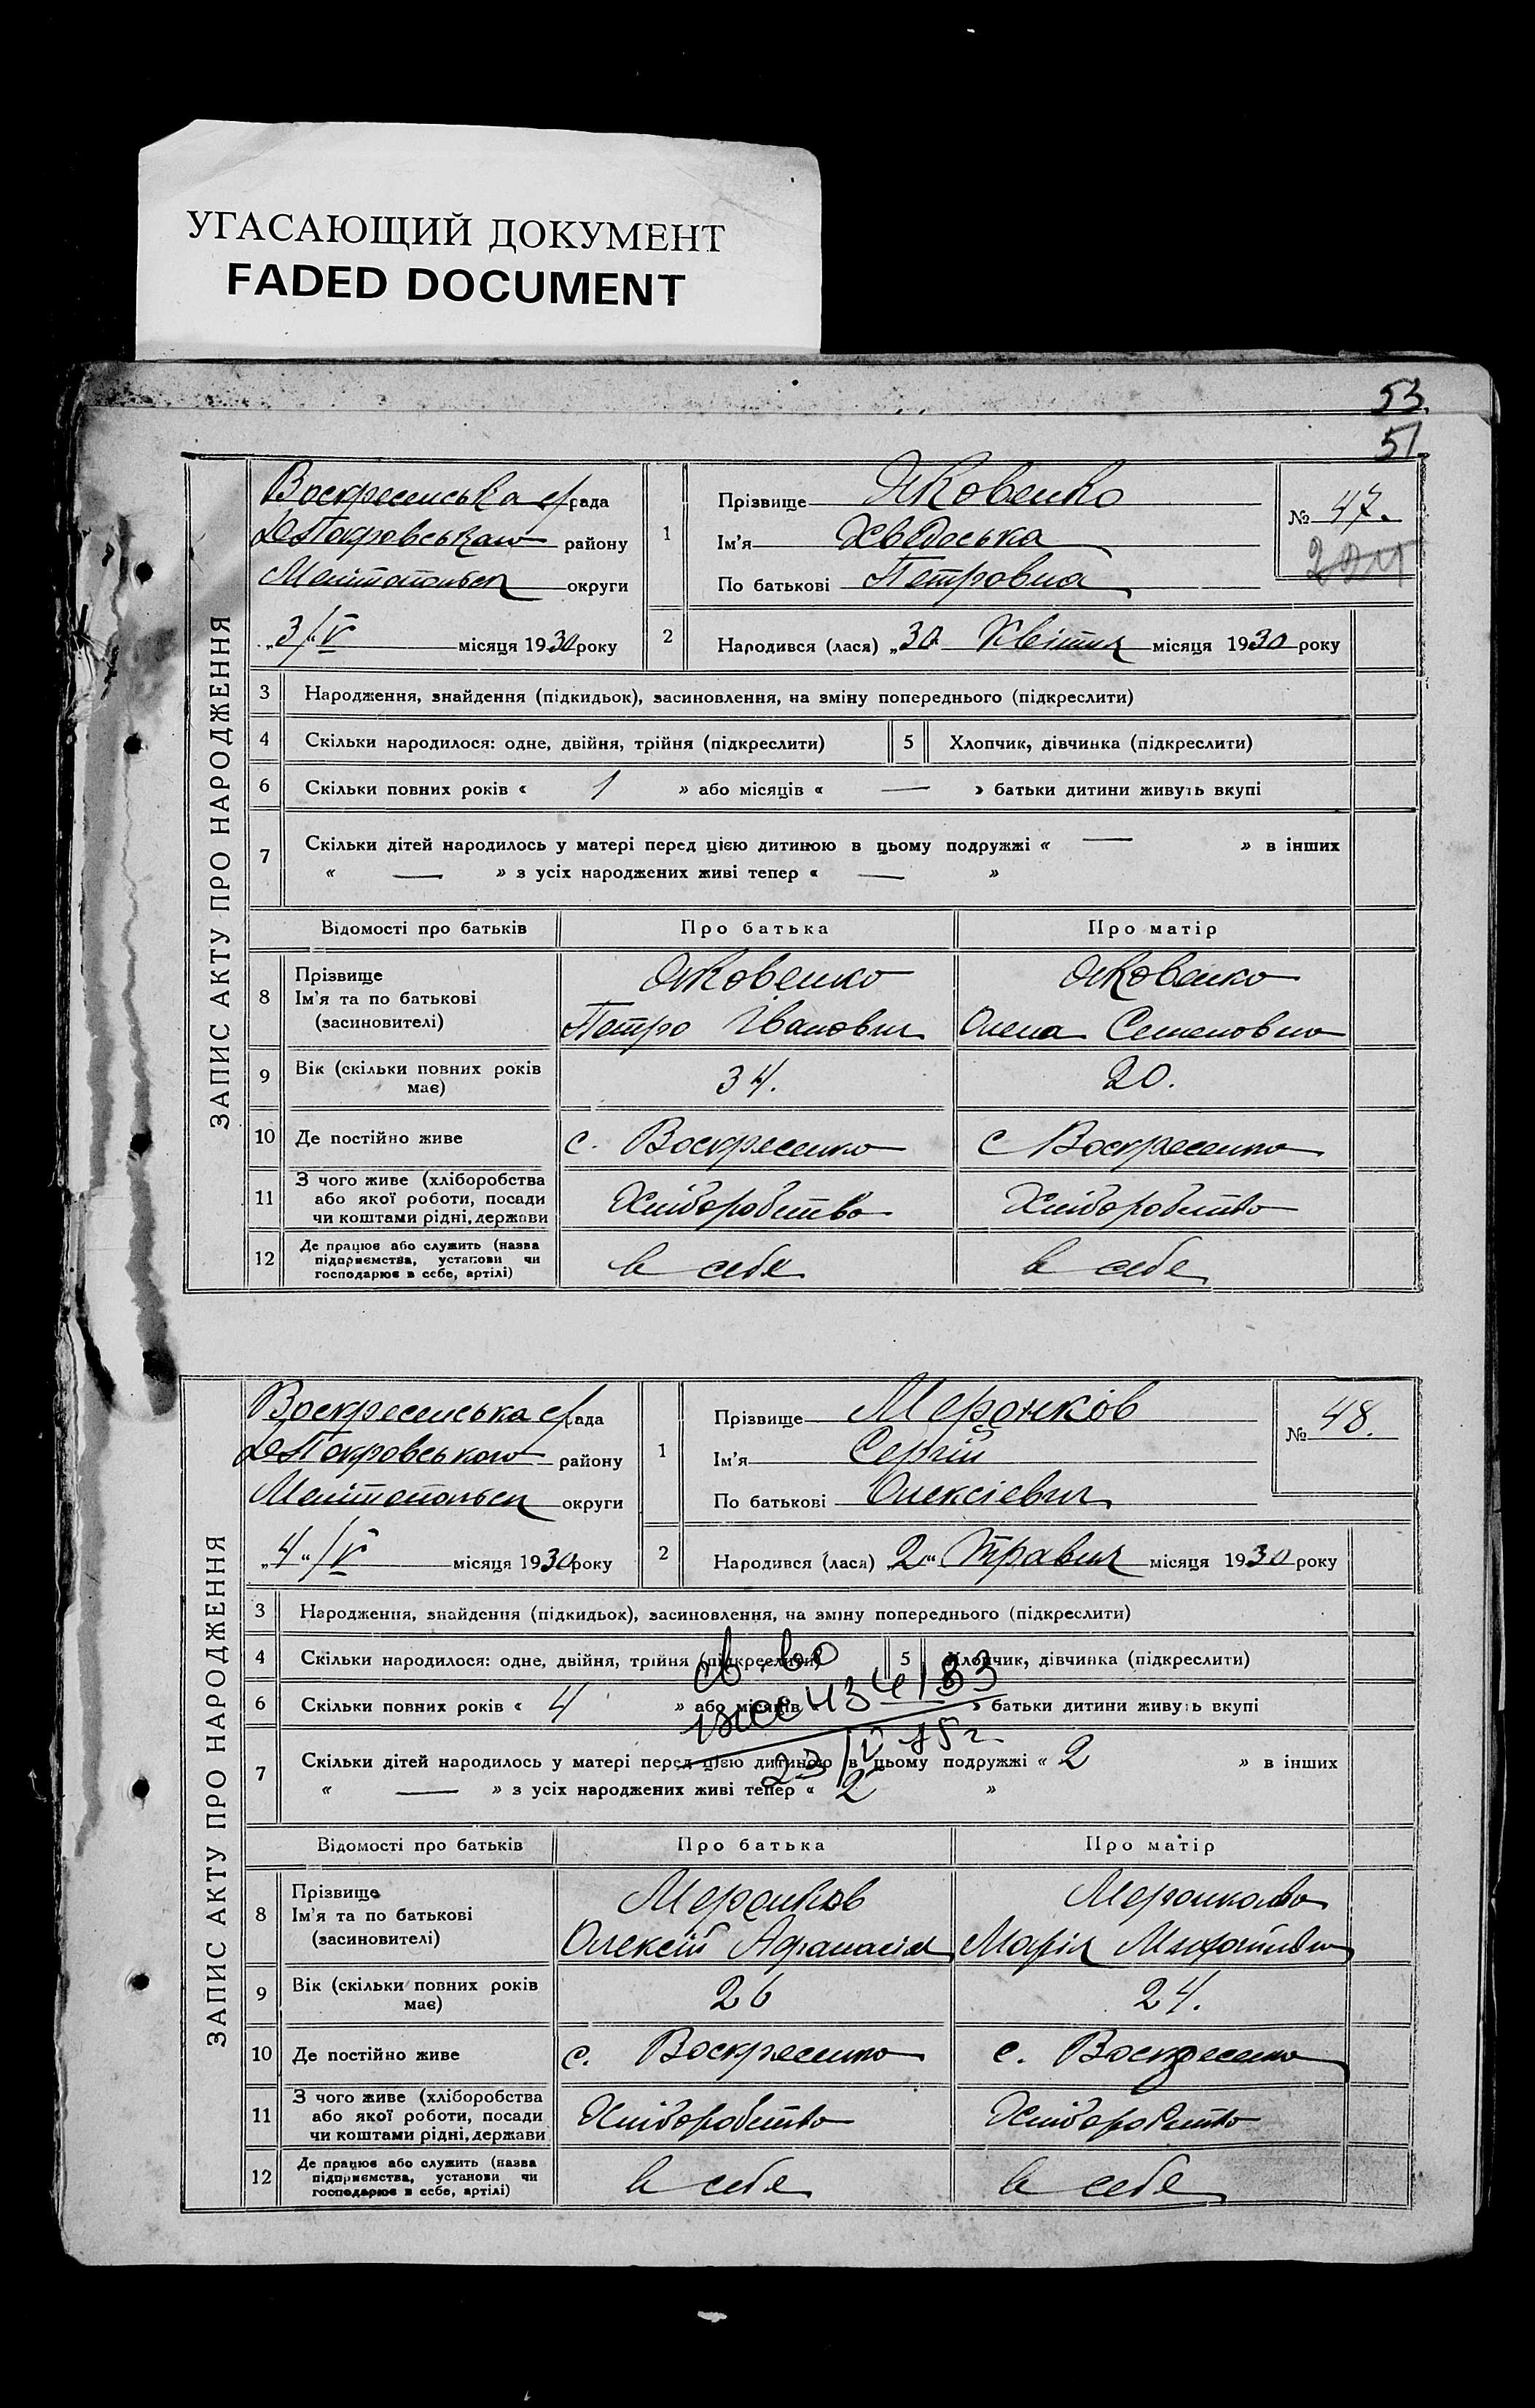 УГАСАЮЩИЙ ДОКУМЕНТ
FADED DOCUMENT
53.
51.
ЗАПИС АКТУ ПРО НАРОДЖЕННЯ
Воскресенська с/рада
Покровського району
Мелітопольск округи
„3/V місяця 1930 року
1
Прізвище Яковенко
Ім'я Хведоська
По батькові Петровна
№ 47.
2 Народився (лася) „30 Квітня місяця 1930 року
3 Народження, знайдення (підкидьок), засиновлення, на зміну попереднього (підкреслити)
4 Скільки народилося: одне, двійня, трійня (підкреслити) 5 Хлопчик, дівчинка (підкреслити)
6 Скільки повних років « 1 » або місяців « — » батьки дитини живуть вкупі
7 Скільки дітей народилось у матері перед цією дитиною в цьому подружжі « — » в інших
« — » з усіх народжених живі тепер « — »
Відомості про батьків Про батька Про матір
8 Прізвище Яковенко Яковенко
Ім'я та по батькові
(засиновителі) Петро Іванович Олена Семеновна
9 Вік (скільки повних років має) 34. 20.
10 Де постійно живе с. Воскресенка с Воскресенка
11 З чого живе (хліборобства
або якої роботи, посади Хліборобство Хліборобство
чи коштами рідні, держави
12 Де працює або служить (назва
підприємства, установи чи в себе в себе
господарює в себе, артілі)
ЗАПИС АКТУ ПРО НАРОДЖЕННЯ
Воскресенська с/рада
Покровського району
Мелітопольск округи
„4“/V місяця 1930 року
1
Прізвище Меронков
Ім'я Сергій
По батькові Олексієвич
№ 48.
2 Народився (лася) „2“ Травня місяця 1930 року
3 Народження, знайдення (підкидьок), засиновлення, на зміну попереднього (підкреслити)
4 Скільки народилося: одне, двійня, трійня (підкреслити) 5 Хлопчик, дівчинка (підкреслити)
св-во
6 Скільки повних років « 4 » або місяців « » батьки дитини живуть вкупі
7 Скільки дітей народилось у матері перед цією дитиною в цьому подружжі « 2 » в інших
« — » з усіх народжених живі тепер « 2 »
Відомості про батьків Про батька Про матір
8 Прізвище Меронков Меронкова
Ім'я та по батькові
(засиновителі) Олексій Афанасієв Марія
9 Вік (скільки повних років має) 26 24.
10 Де постійно живе с. Воскресенка с. Воскресенка
11 З чого живе (хліборобства
або якої роботи, посади Хліборобство Хліборобство
чи коштами рідні, держави
12 Де працює або служить (назва
підприємства, установи чи в себе в себе
господарює в себе, артілі)